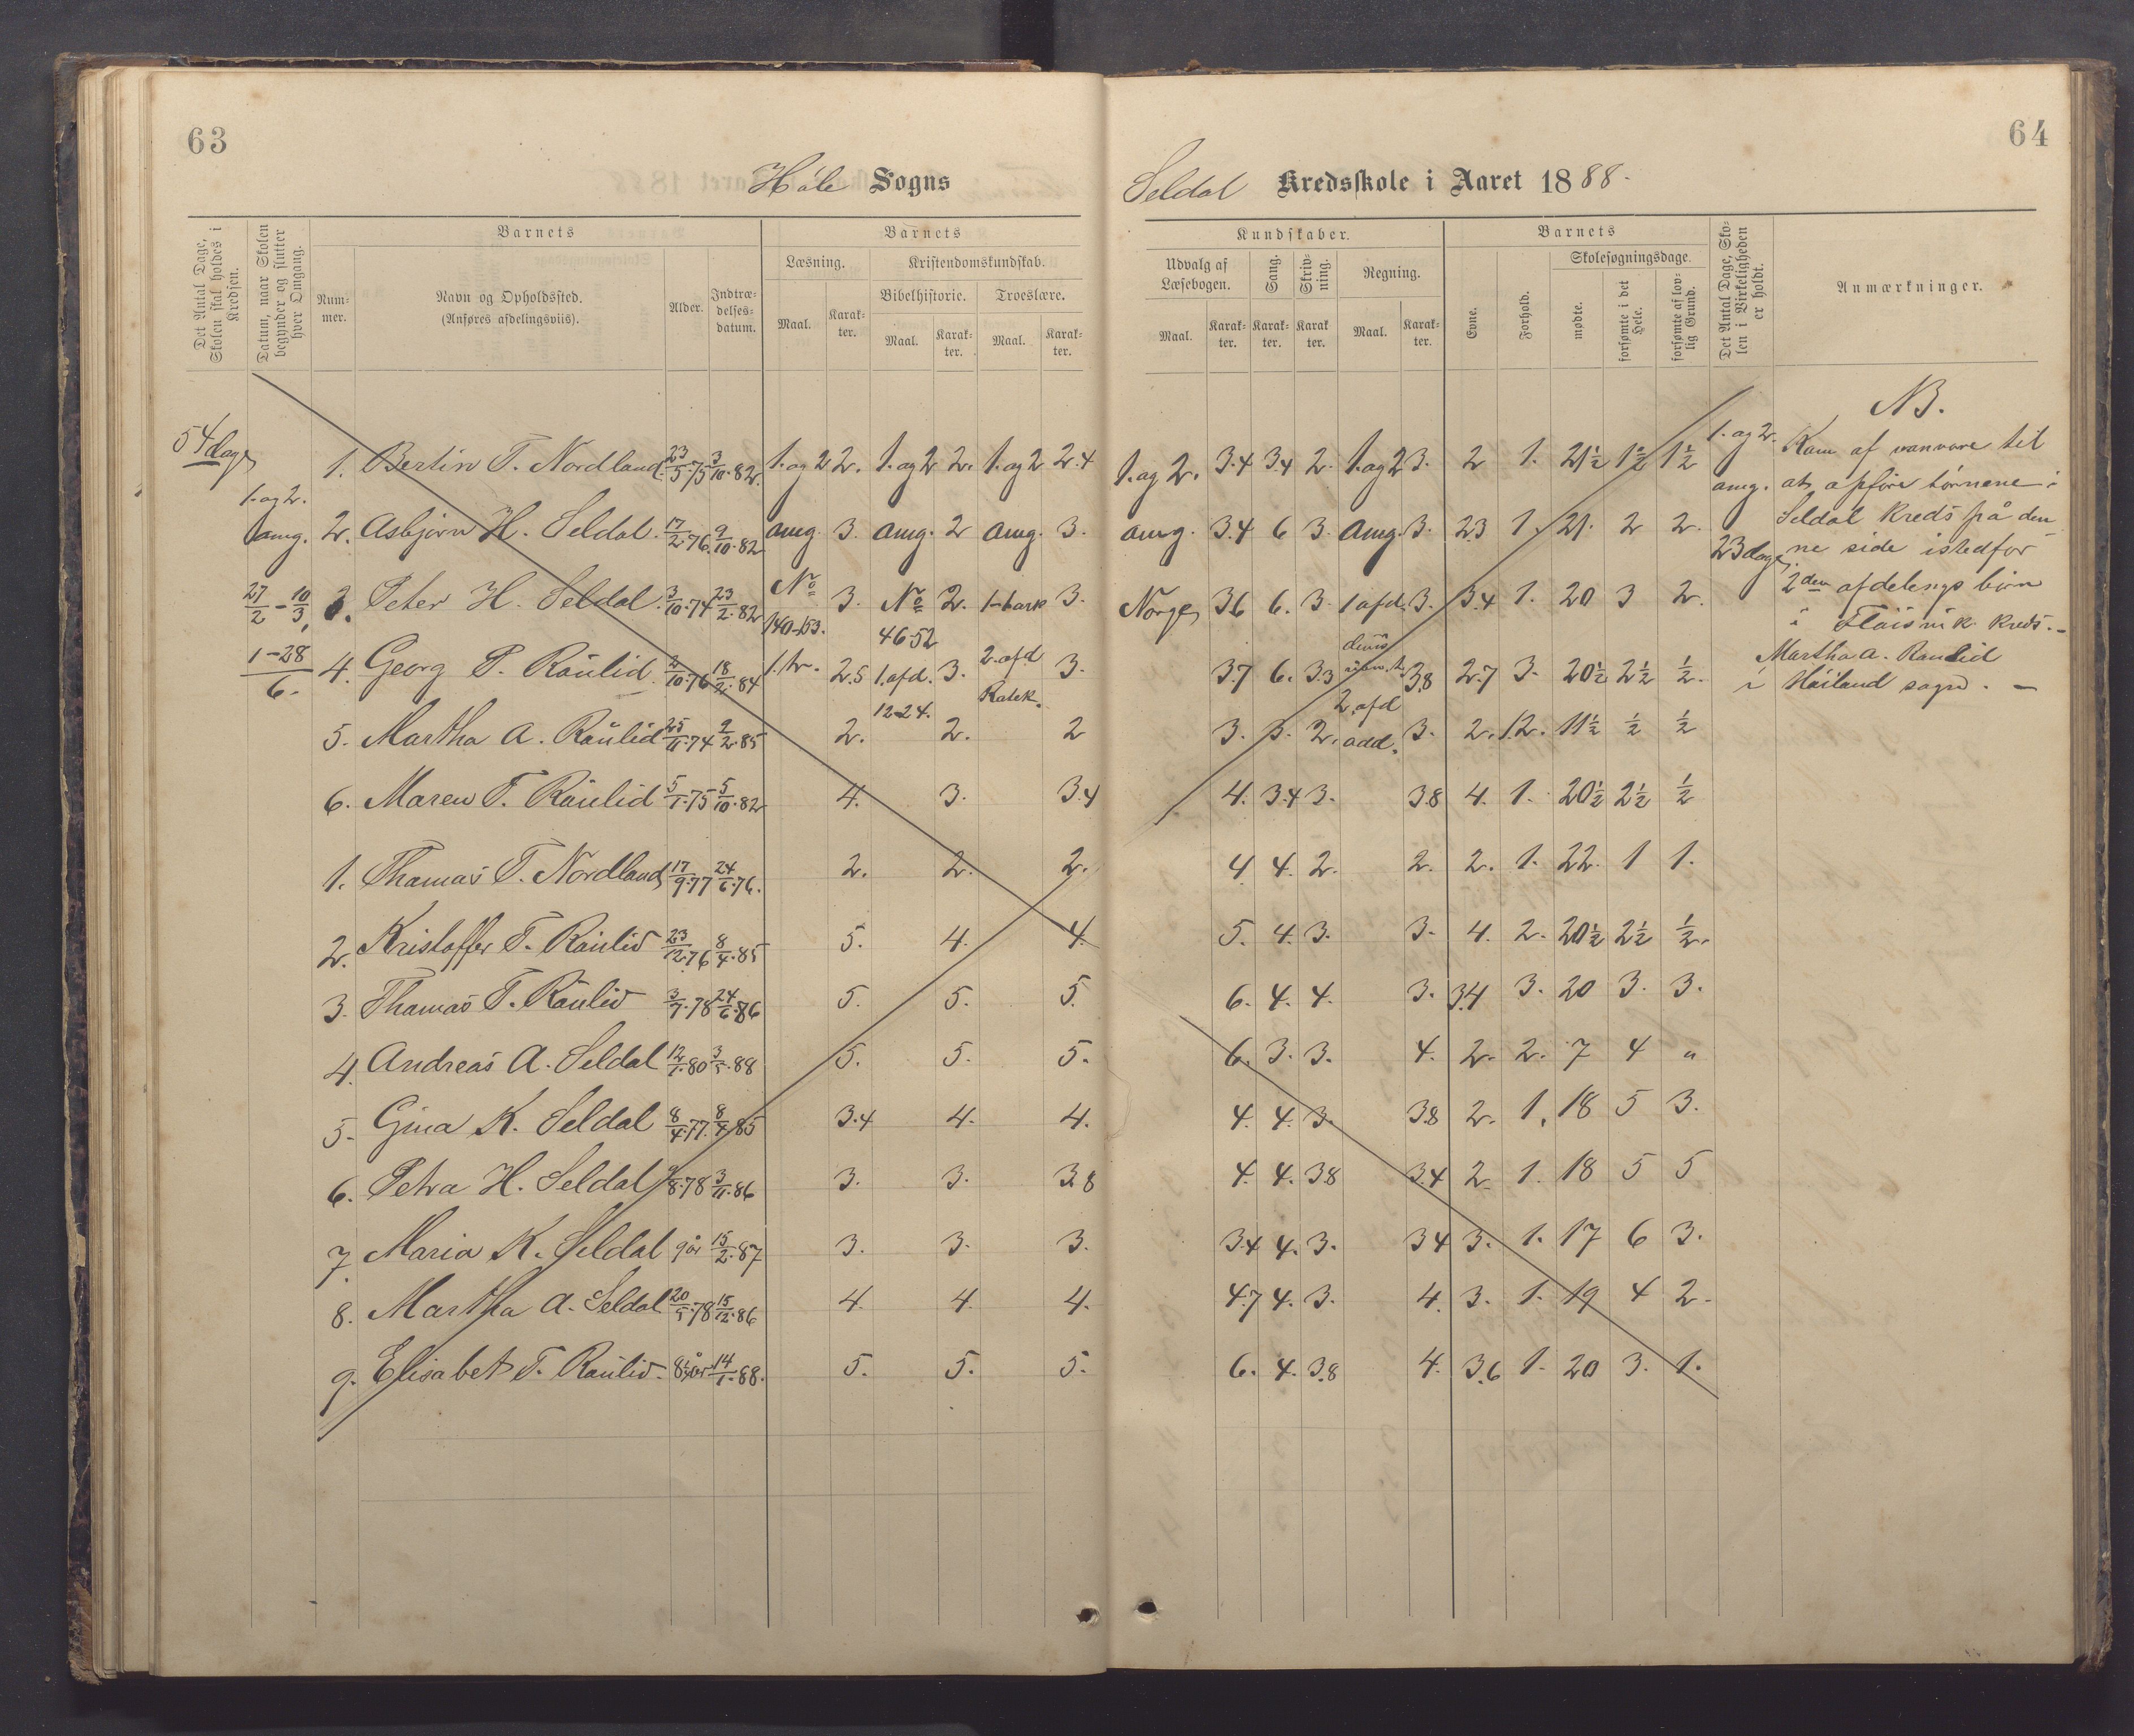 63
64
Høle Sogns
Seldal Kredsskole i Aaret 1888.
Det Antal Dage, Skolen skal holdes i Kredsen.
Datum, naar Skolen begynder og slutter hver Omgang.
Barnets
Num-
mer.
Navn og Opholdssted.
(Anføres afdelingsviis).
Alder.
Indtræ-
delses-
datum.
Barnets
Læsning.
Maal.
Karak-
ter.
Kristendomskundskab.
Bibelhistorie.
Maal.
Karak-
ter.
Troeslære.
Maal.
Karak-
ter.
Kundskaber.
Udvalg af
Læsebogen.
Maal.
Karak-
ter.
Sang.
Karak-
ter.
Skriv-
ning.
Karak
ter.
Regning.
Maal.
Karak-
ter.
Barnets
Evne.
Forhold.
Skolesøgningsdage.
mødte.
forsømte i det Hele.
forsømte af lov-
lig Grund.
Det Antal Dage, Sko-
len i Virkeligheden
er holdt.
Anmærkninger.
54 dage
1. og 2.
omg.
27/2 - 10/3,
1-28
6.
1. Bertin T. Nordland 23/5.75 3/10.82. 1. og 2 2. 1. og 2 2. 1. og 2 2.4 1. og 2. 3.4 3.4 2. 1. og 2 3. 2 1. 21½ 1½ 1½
2. Asbjørn H. Seldal. 17/2.76. 9/10.82 omg. 3. omg. 2 omg. 3. omg. 3.4 6 3. omg. 3. 2.3 1. 21. 2 2.
3. Peter H. Seldal. 3/10.74 23/2.82 No 3. No 2. 3. Norge, 3.6 6. 3. 1 afd. 3. 3.4 1. 20 3 2.
140-153.
46-52
4. Georg T. Raulid. 2/10.76 18/2.84 2.5 1. afd. 3. 2. afd 3. 3.7 6. 3.3 3.8 2.7 3. 20½ 2½ ½.
12-24.
Katek.
5. Martha A. Råulid 25/11.74 2/2.85 2. 2. 2 3. 3. 2. 2. afd add. 3. 2. 1.2. 11½ ½ ½
6. Maren T. Råulid 5/1.75 5/10.82 4. 3. 3.4 4. 3.4 3. 3.8 4. 1. 20½ 2½ ½
1. Thomas T. Nordland 17/9.77 24/6.76. 2. 2. 2. 4 4. 2. 2. 2. 1. 22. 1 1.
2. Kristoffer T. Råulid 23/12.76 8/4.85 5. 4. 4. 5. 4. 3. 3. 4. 2. 20½ 2½ ½.
3. Thomas T. Råulid 3/7.78 24/6.86 5. 5. 5. 6. 4. 4. 3. 3.4 3. 20 3. 3.
4. Andreas A. Seldal 12/1.80 3/5.88 5. 5. 5. 6. 3. 3. 4. 2. 2. 7 4 "
5. Gina K. Seldal 8/4.77. 8/4.85 3.4 4. 4. 4. 4. 3. 3.8 2. 1. 18 5 3.
6. Petra H. Seldal 8.78 3/11.86 3. 3. 3.8 4. 4. 3.8 3.4 2. 1. 18 5 5
7. Maria K. Seldal 9 år 15/2.87 3. 3. 3. 3.4 4. 3. 3.4 3. 1. 17 6 3.
8. Martha A. Seldal 20/5.78 15/12.86 4. 4. 4. 4.7 4. 3. 4. 3. 1. 19 4 2.
9. Elisabet T. Raulid. 8½ år 14/1.88. 5. 5. 5. 6. 4. 3.8 4. 3.6 1. 20 3. 1.
1. og 2.
omg.
23 dage
NB.
Kom af vanvare til
at opføre børnene i
Seldal Kreds på den-
ne side istedfor
2den afdelings børn
i kreds. -
Martha A. Raulid
i Høiland sogn. -